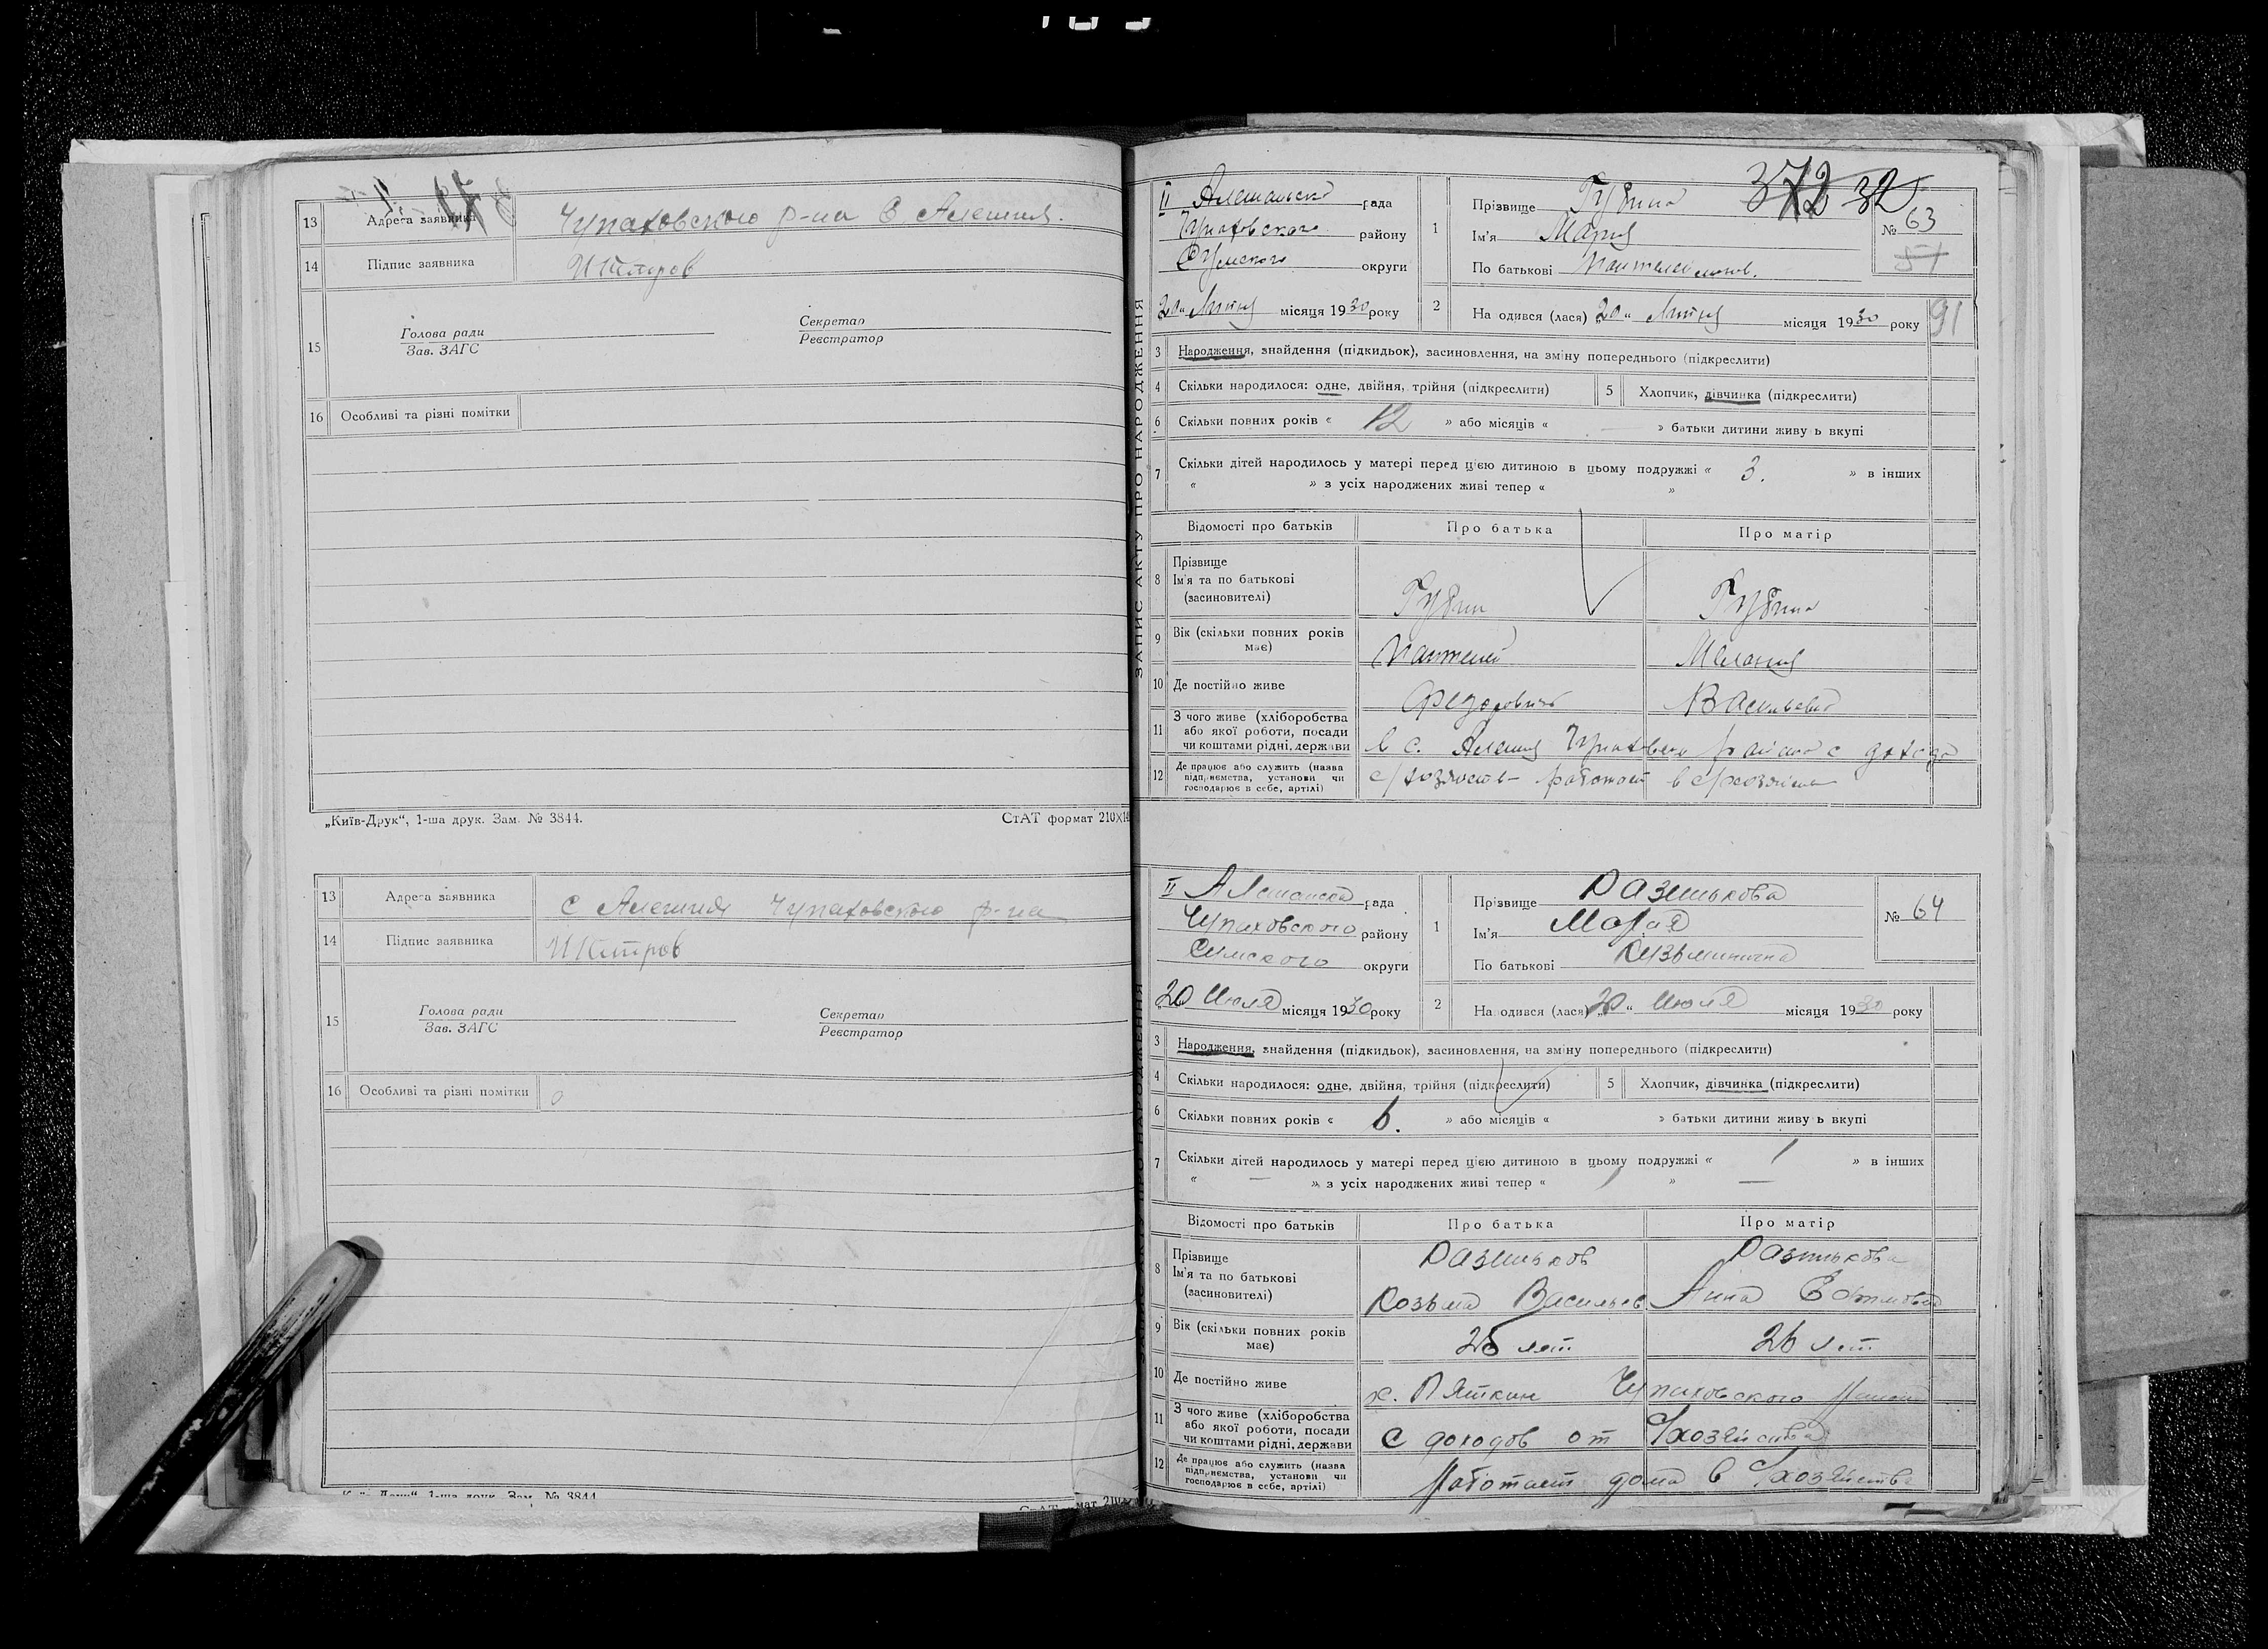 13 Адреса заявника Чупаховского р-на С Алешня.
14 Підпис заявника
15 Голова ради Секретар
Зав. ЗАГС Реєстратор
16 Особливі та різні помітки
„Київ-Друк“, 1-ша друк. Зам. № 3844. СтАТ формат 210Х14
13 Адреса заявника С Алешня Чупаховского р-на
14 Підпис заявника
15 Голова ради Секретар
Зав. ЗАГС Реєстратор
16 Особливі та різні помітки
1-ша друк. Зам. № 3844
ЗАПИС АКТУ ПРО НАРОДЖЕННЯ
372 32
II Алешанска рада
Чупаховского району
Сумского округи
„20“ Липня місяця 1930 року
1 Прізвище Губина
Ім'я Мария
По батькові
№ 63
51
2 Народився (лася) „20“ Липня місяця 1930 року
91
3 Народження, знайдення (підкидьок), засиновлення, на зміну попереднього (підкреслити)
4 Скільки народилося: одне, двійня, трійня (підкреслити) 5 Хлопчик, дівчинка (підкреслити)
6 Скільки повних років « 12 » або місяців « — » батьки дитини живуть вкупі
7 Скільки дітей народилось у матері перед цією дитиною в цьому подружжі « 3. » в інших
« » з усіх народжених живі тепер « »
Відомості про батьків Про батька Про матір
8 Прізвище
Ім'я та по батькові
(засиновителі) Губин Губина
9 Вік (скільки повних років
має) Пантелей Мелания
10 Де постійно живе Федорович Васильевна
11 З чого живе (хліборобства
або якої роботи, посади
чи коштами рідні, держави в с. Алешня
12 Де працює або служить (назва
підприємства, установи чи
господарює в себе, артілі) работают в
II Алешанска рада
Чупаховского району
Сумского округи
20 Июля місяця 1930 року
1 Прізвище Разинькова
Ім'я Мария
По батькові Кузьминична
№ 64
2 Народився (лася) „20“ Июля місяця 1930 року
3 Народження, знайдення (підкидьок), засиновлення, на зміну попереднього (підкреслити)
4 Скільки народилося: одне, двійня, трійня (підкреслити) 5 Хлопчик, дівчинка (підкреслити)
6 Скільки повних років « 6. » або місяців « » батьки дитини живуть вкупі
7 Скільки дітей народилось у матері перед цією дитиною в цьому подружжі « 1 » в інших
« — » з усіх народжених живі тепер « 1 » —
Відомості про батьків Про батька Про матір
8 Прізвище
Ім'я та по батькові
(засиновителі) Разиньков Разинькова
Козьма Васильев Анна
9 Вік (скільки повних років
має) 26 лет 26 лет
10 Де постійно живе х. Пяткин Чупаховского
11 З чого живе (хліборобства
або якої роботи, посади
чи коштами рідні, держави С доходов от С/хозяйства
12 Де працює або служить (назва
підприємства, установи чи
господарює в себе, артілі) Работает дома в С/хозяйстве